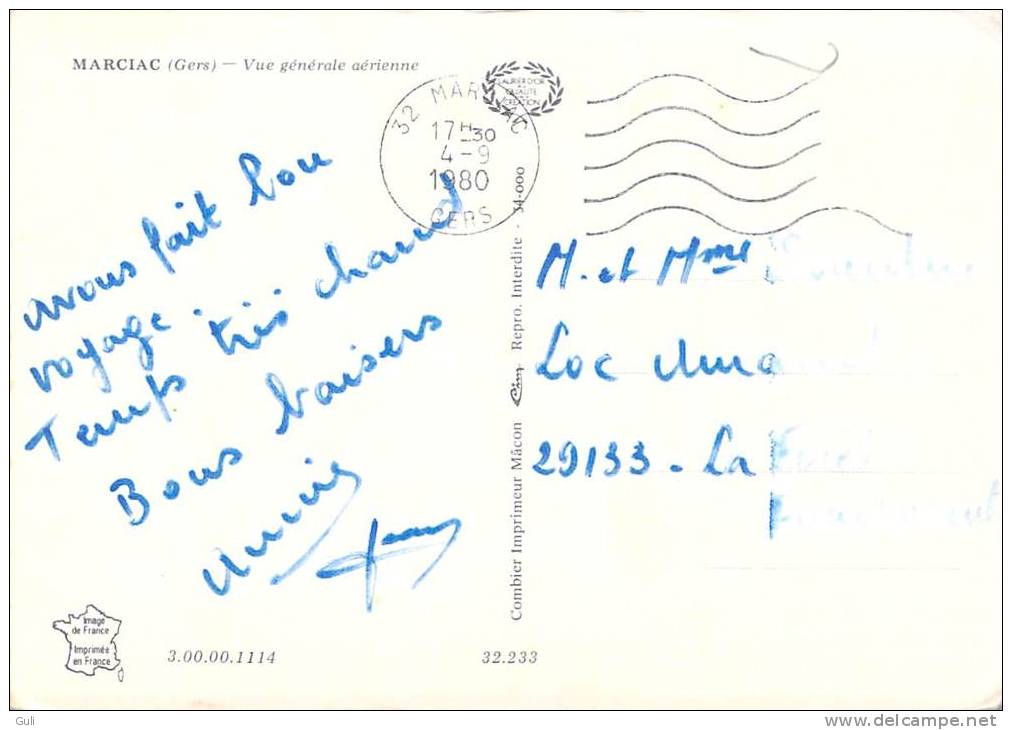 MARCIAC (Gers) — Vue générale aérienne
32 MARCIAC
17H30
4-9
1980
GERS
LAURIER D'OR
QUALITÉ
CRÉATION
avons fait bon
voyage.
Temps très chaud
Bons baisers
Combier Imprimeur Mâcon Cim Repro. Interdite - 34.000
M. et Mme
Loc
29133 - La
Image
de France
Imprimée
en France
3.00.00.1114
32.233
Guli
www.delcampe.net